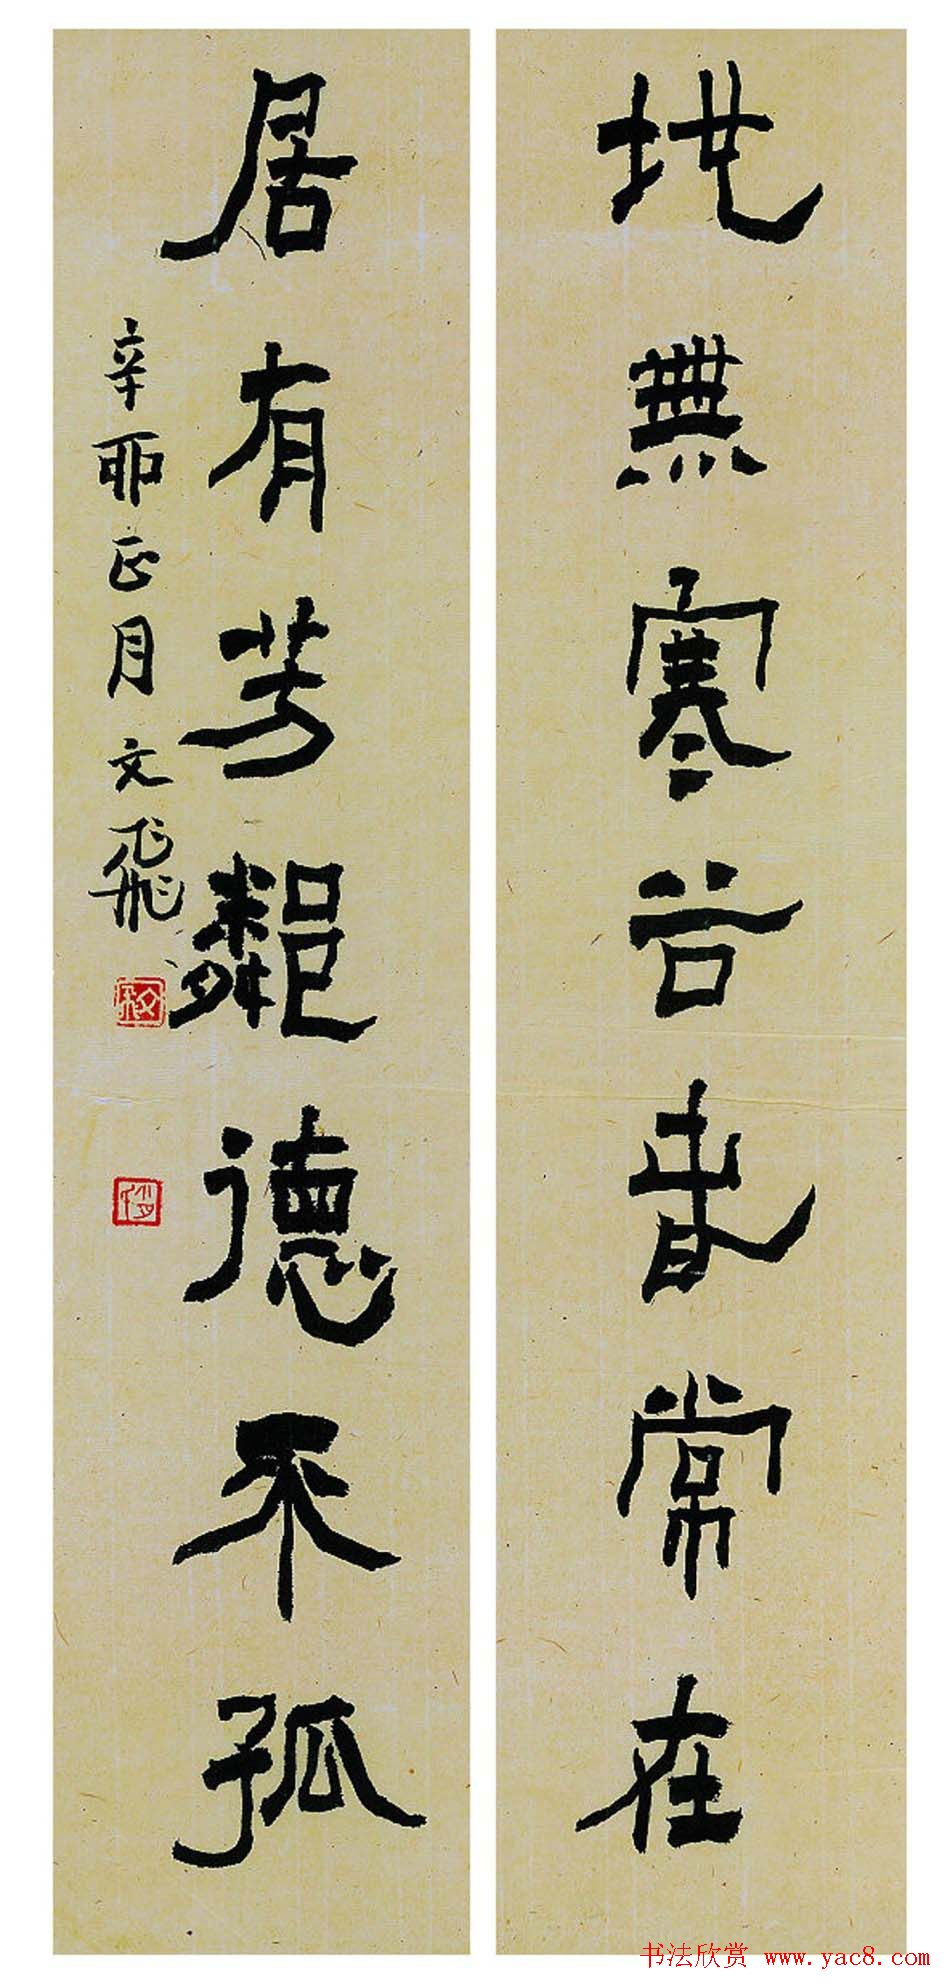 地無寒谷春常在
居有芳鄰德不孤
辛丣正月文飛
书法欣赏 www.yac8.com